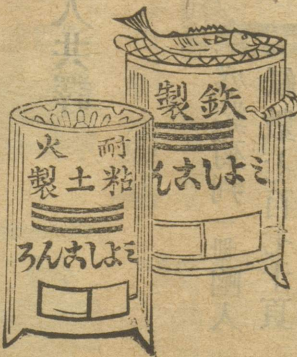 鉃製
ミよしこん
耐火
粘土製
ミよしこんろ